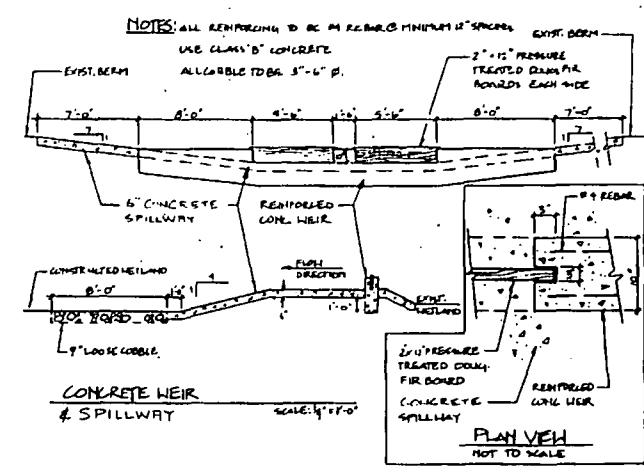 NOTES: ALL REINFORCING TO BE #4 REBAR @ MINIMUM 12" SPACING
USE CLASS "B" CONCRETE
ALL COBBLE TO BE 3"-6" Ø.
EXIST. BERM
EXIST. BERM
2" x 12" PRESSURE
TREATED DOUG FIR
BOARDS EACH SIDE
7'-0" 8'-0" 4'-6" 5'-6" 8'-0" 7'-0"
7
7
6" CONCRETE
SPILLWAY
REINFORCED
CONC. WEIR
CONSTRUCTED WETLAND
8'-0"
4
FLOW
DIRECTION
1'-0"
EXIST.
WETLAND
9" LOOSE COBBLE
CONCRETE WEIR
& SPILLWAY
SCALE: 1/4" = 1'-0"
3"
#4 REBAR
2x12 PRESSURE
TREATED DOUG.
FIR BOARD
CONCRETE
SPILLWAY
REINFORCED
CONC WEIR
PLAN VIEW
NOT TO SCALE